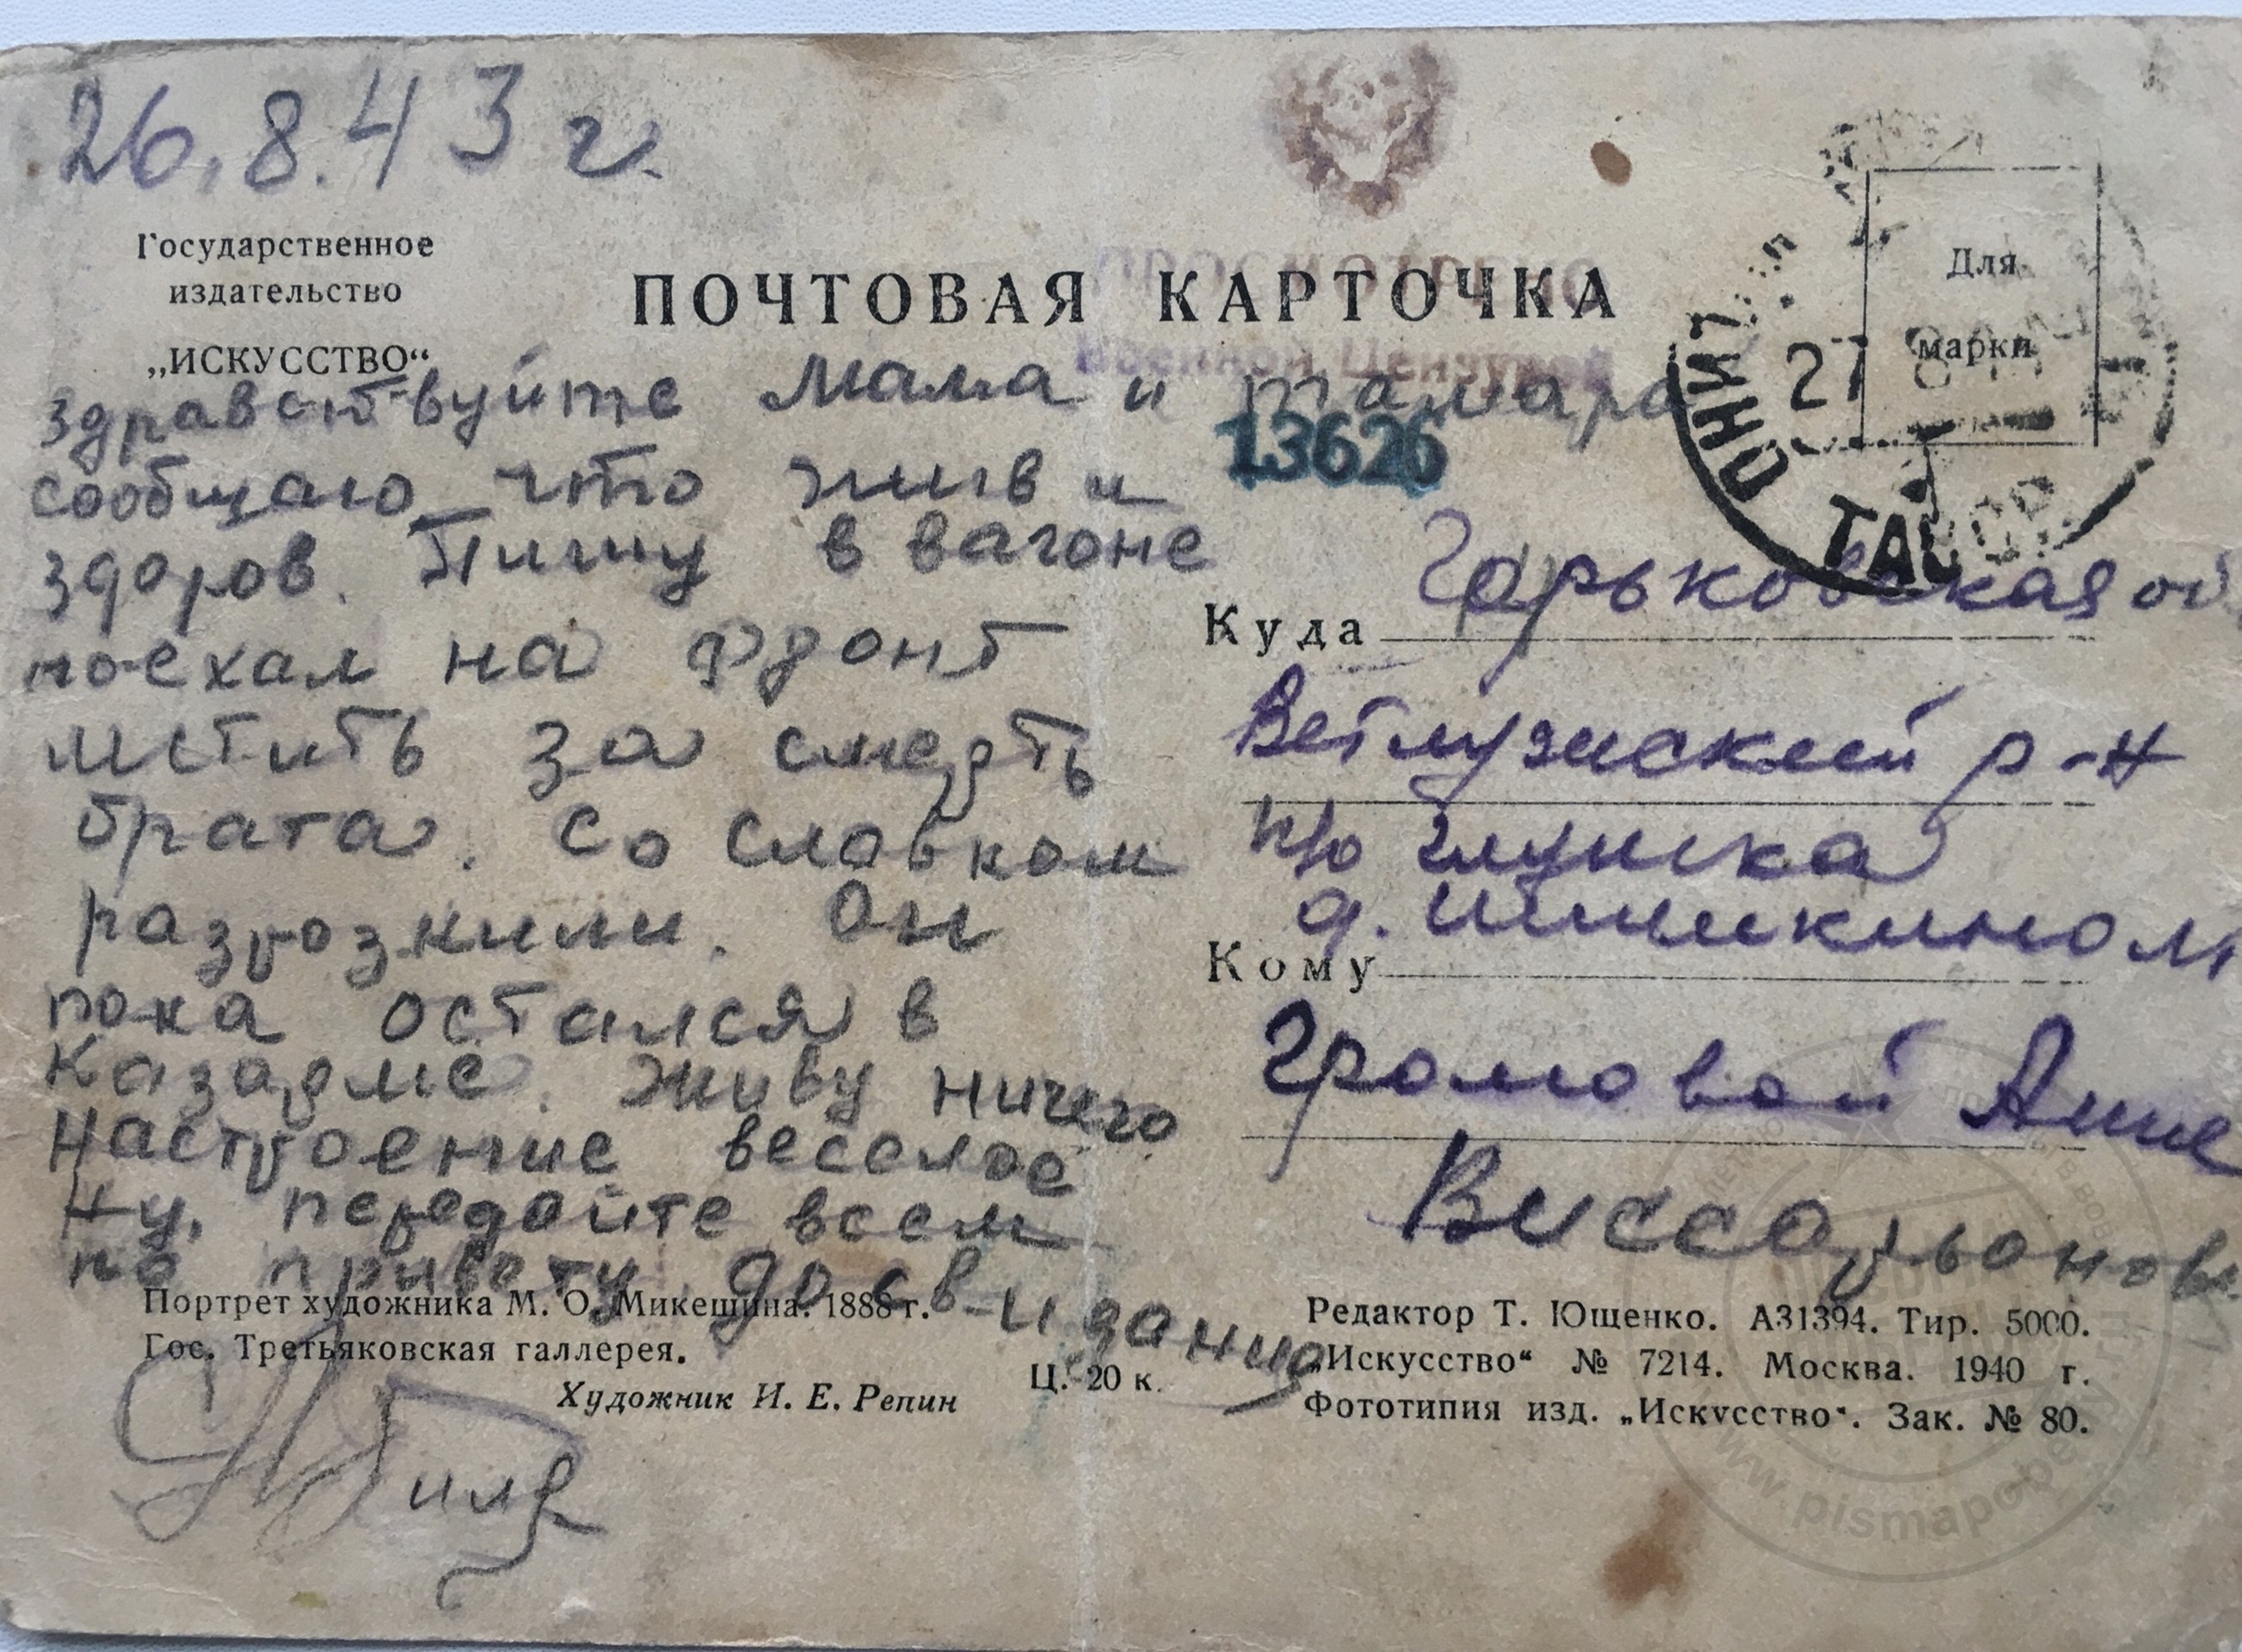 26.8.43 г.
Государственное
издательство
„ИСКУССТВО“
ПОЧТОВАЯ КАРТОЧКА
ПРОСМОТРЕНО
Военной Цензурой
13626
Для
марки
27
здравствуйте Мама и тамара
сообщаю что жив и
здоров. Пишу в вагоне
поехал на фронт
мстить за смерть
брата. Со славком
разрознили. Он
пока остался в
казарме. Живу ничего
настроение веселое
Ну, передайте всем
по привету. До свидания
Куда Горьковская об
Ветлужский р-н
п/о глушка
д. Шишкином
Кому
Громовой Анне
Виссарьоновне
Портрет художника М. О. Микешина. 1888 г.
Гос. Третьяковская галлерея.
Художник И. Е. Репин
Ц. 20 к.
Редактор Т. Ющенко. А31394. Тир. 5000.
„Искусство“ № 7214. Москва. 1940 г.
Фототипия изд. „Искусство“. Зак. № 80.
www.pismapobedy.ru